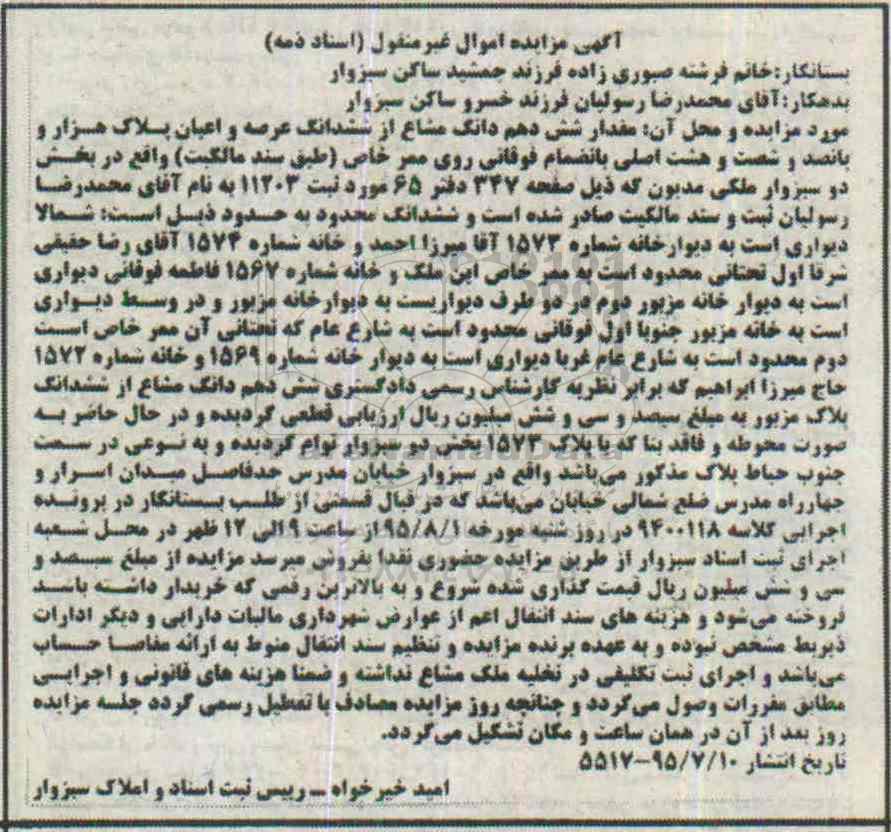 آگهی مزایده اموال غیر منقول (اسناد ذمه)
بستانکار: خانم فرشته صبوری زاده فرزند جمشید ساکن سبزوار
بدهکار: آقای محمدرضا رسولیان فرزند خسرو ساکن سبزوار
مورد مزایده و محل آن: مقدار شش دهم دانگ مشاع از ششدانگ عرصه و اعیان پلاک هزار و
پانصد و شصت و هشت اصلی بانضمام فوقانی روی ممر خاص (طبق سند مالکیت) واقع در بخش
دو سبزوار ملکی مدیون که ذیل صفحه ۳۴۷ دفتر ۶۵ مورد ثبت ۱۱۲۰۳ به نام آقای محمدرضا
رسولیان ثبت و سند مالکیت صادر شده است و ششدانگ محدود به حدود ذیل است: شمالا
دیواری است به دیوارخانه شماره ۱۵۷۳ آقا میرزا احمد و خانه شماره ۱۵۷۴ آقای رضا حقیقی
شرقا اول تحتانی محدود است به ممر خاص این ملک و خانه شماره ۱۵۶۷ فاطمه فوقانی دیواری
است به دیوار خانه مزبور دوم در دو طرف دیواریست به دیوارخانه مزبور و در وسط دیواری
است به خانه مزبور جنوبا اول فوقانی محدود است به شارع عام که تحتانی آن ممر خاص است
دوم محدود است به شارع عام غربا دیواری است به دیوار خانه شماره ۱۵۶۹ و خانه شماره ۱۵۷۲
حاج میرزا ابراهیم که برابر نظریه کارشناس رسمی دادگستری شش دهم دانگ مشاع از ششدانگ
پلاک مزبور به مبلغ سیصد و سی و شش میلیون ریال ارزیابی قطعی گردیده و در حال حاضر به
صورت محوطه و فاقد بنا که با پلاک ۱۵۷۳ بخش دو سبزوار توام گردیده و به نوعی در سمت
جنوب حیاط پلاک مذکور می‌باشد واقع در سبزوار خیابان مدرس حدفاصل میدان اسرار و
چهارراه مدرس ضلع شمالی خیابان می‌باشد که در قبال قسمتی از طلب بستانکار در پرونده
اجرایی کلاسه ۹۴۰۰۱۱۸ در روز شنبه مورخه ۹۵/۸/۱ از ساعت ۹ الی ۱۲ ظهر در محل شعبه
اجرای ثبت اسناد سبزوار از طریق مزایده حضوری نقدا بفروش میرسد مزایده از مبلغ سیصد و
سی و شش میلیون ریال قیمت گذاری شده شروع و به بالاترین رقمی که خریدار داشته باشد
فروخته می‌شود و هزینه های سند انتقال اعم از عوارض شهرداری مالیات دارایی و دیگر ادارات
ذیربط مشخص نبوده و به عهده برنده مزایده و تنظیم سند انتقال منوط به ارائه مفاصا حساب
می‌باشد و اجرای ثبت تکلیفی در تخلیه ملک مشاع نداشته و ضمنا هزینه های قانونی و اجرایی
مطابق مقررات وصول می‌گردد و چنانچه روز مزایده مصادف با تعطیل رسمی گردد جلسه مزایده
روز بعد از آن در همان ساعت و مکان تشکیل می‌گردد.
تاریخ انتشار ۹۵/۷/۱۰-۵۵۱۷
امید خیرخواه – رییس ثبت اسناد و املاک سبزوار